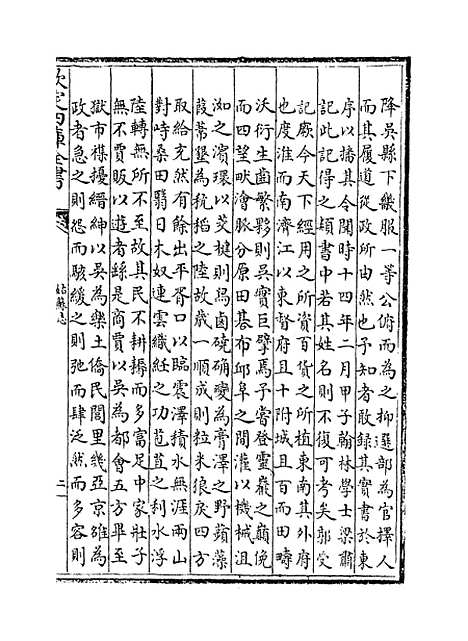 降吳縣下纔服一等公俯而為之抑選部為官擇人
而其履道從政所由然也予知者敢録其實書於東
序以播其令聞時十四年二月甲子翰林學士梁肅
記此記得之類書中若其姓名則不復可考矣郭受
記厥今天下經用之所資百貨之所植東南其外府
也度淮而南濟江以東督府且十附城且百而田疇
沃衍生齒繁夥則吳實巨擘焉予嘗登靈巖之巔俛
而四望畎澮脈分原田棊布邱阜之間灌以機械沮
洳之濱環以茭楗則舄鹵磽确變為膏澤之野蘋藻
葭葦墾為秔稻之陸故歲一順成則粒米狼戾四方
取給充然有餘出平胥口以臨震澤積水無涯兩山
對峙桑田翳日木奴連雲織絍之功苞苴之利水浮
陸轉無所不至故其民不耕耨而多富足中家壯子
無不賈販以遊者繇是商賈以吳為都會五方畢至
獄市襍擾縉紳以吳為樂土僑民閭里幾亞京雒為
政者急之則怨而駭緩之則弛而肆泛然而多容則
欽定四庫全書
姑蘇志